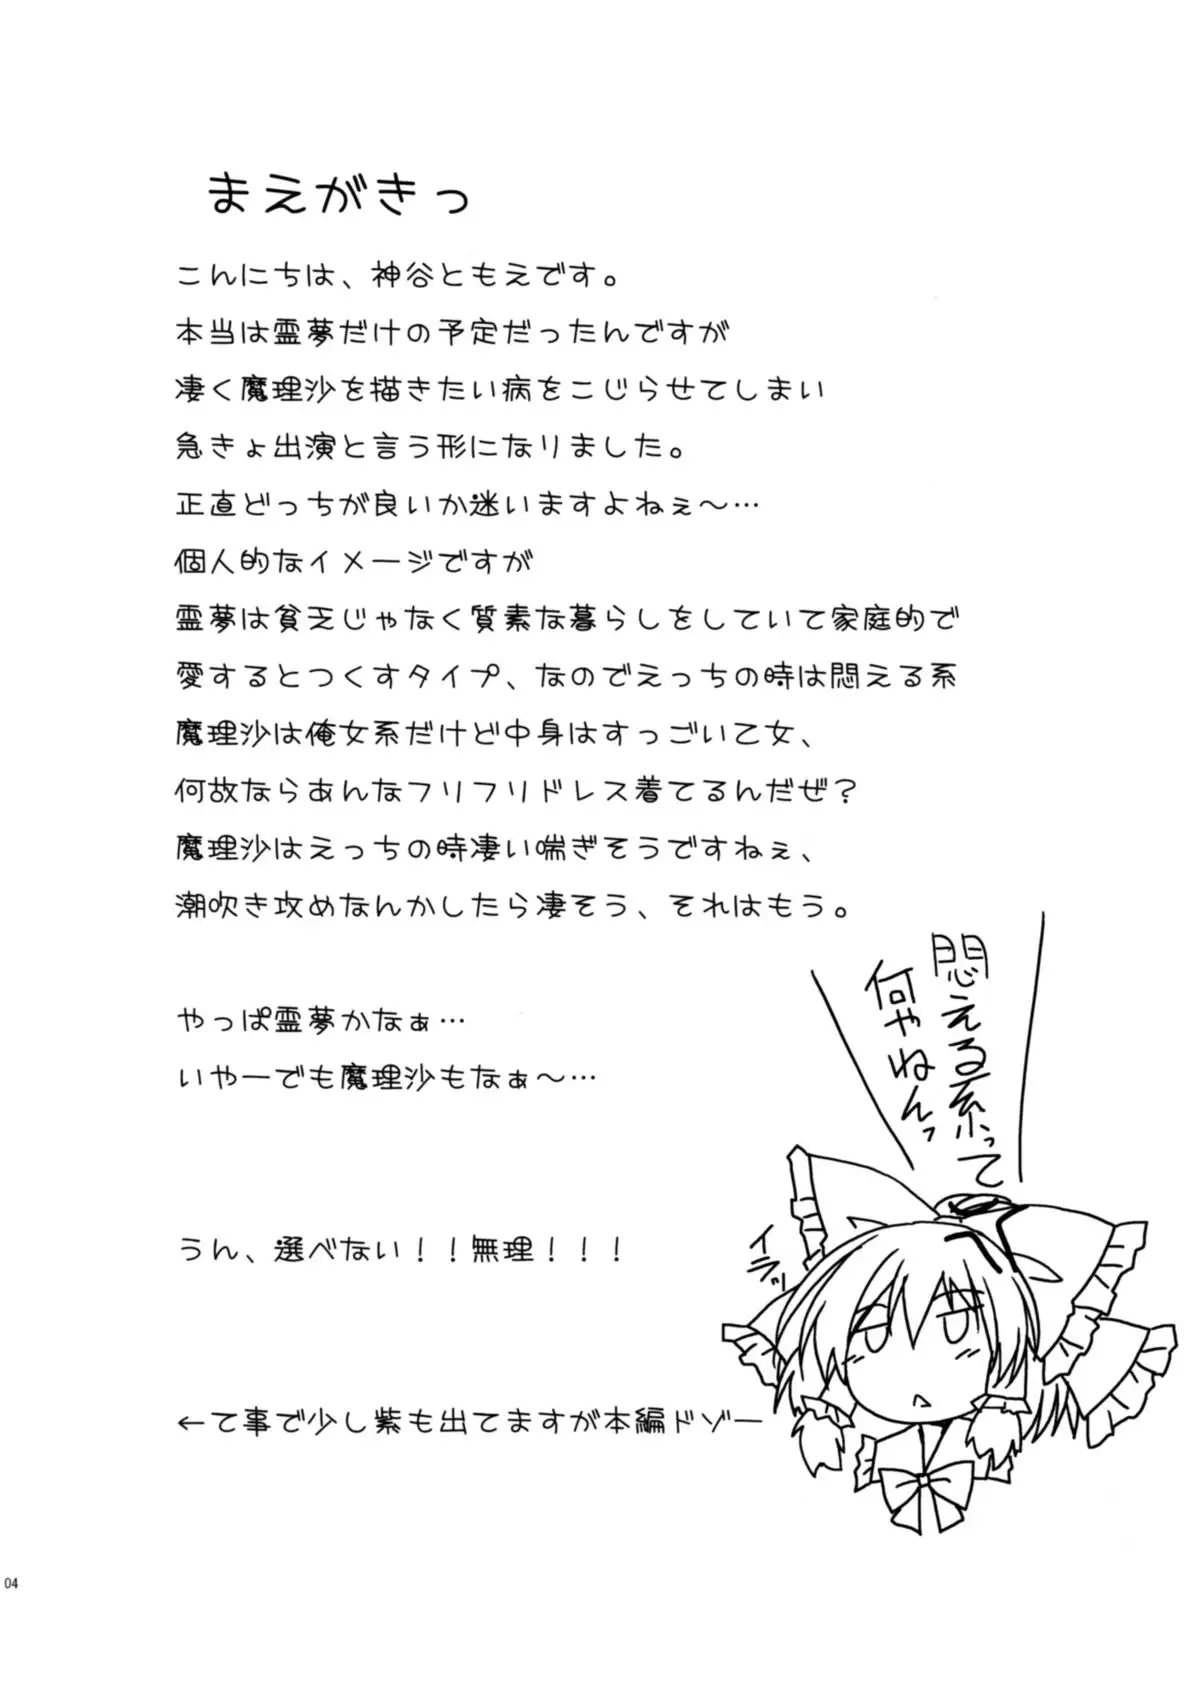 まえがきっ
こんにちは、神谷ともえです。
本当は霊夢だけの予定だったんですが
凄く魔理沙を描きたい病をこじらせてしまい
急きょ出演と言う形になりました。
正直どっちが良いか迷いますよねぇ～…
個人的なイメージですが
霊夢は貧乏じゃなく質素な暮らしをしていて家庭的で
愛するとつくすタイプ、なのでえっちの時は悶える系
魔理沙は俺女系だけど中身はすっごいて女、
何故ならあんなフリフリドレス着てるんだぜ？
魔理沙はえっちの時凄い喘ぎそうですねぇ、
潮吹き攻めなんかしたら凄そう、それはもう。
やっぱ霊夢かなぁ…
いやーでも魔理沙もなぁ～…
うん、選べない！！無理！！！
←て事で少し紫も出てますが本編ドゾー
悶える系って
何やねんっ
イラッ
04